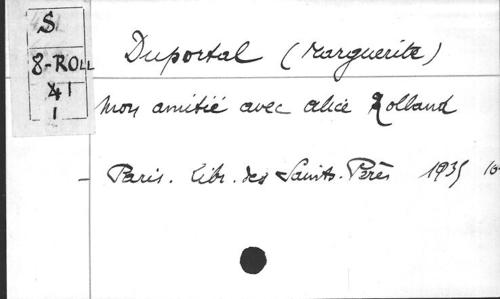 S
8-ROLL
41
1
Duportal (Marguerite)
Mon amitié avec Alice Rolland
— Paris. Libr. des Saints-Pères 1935